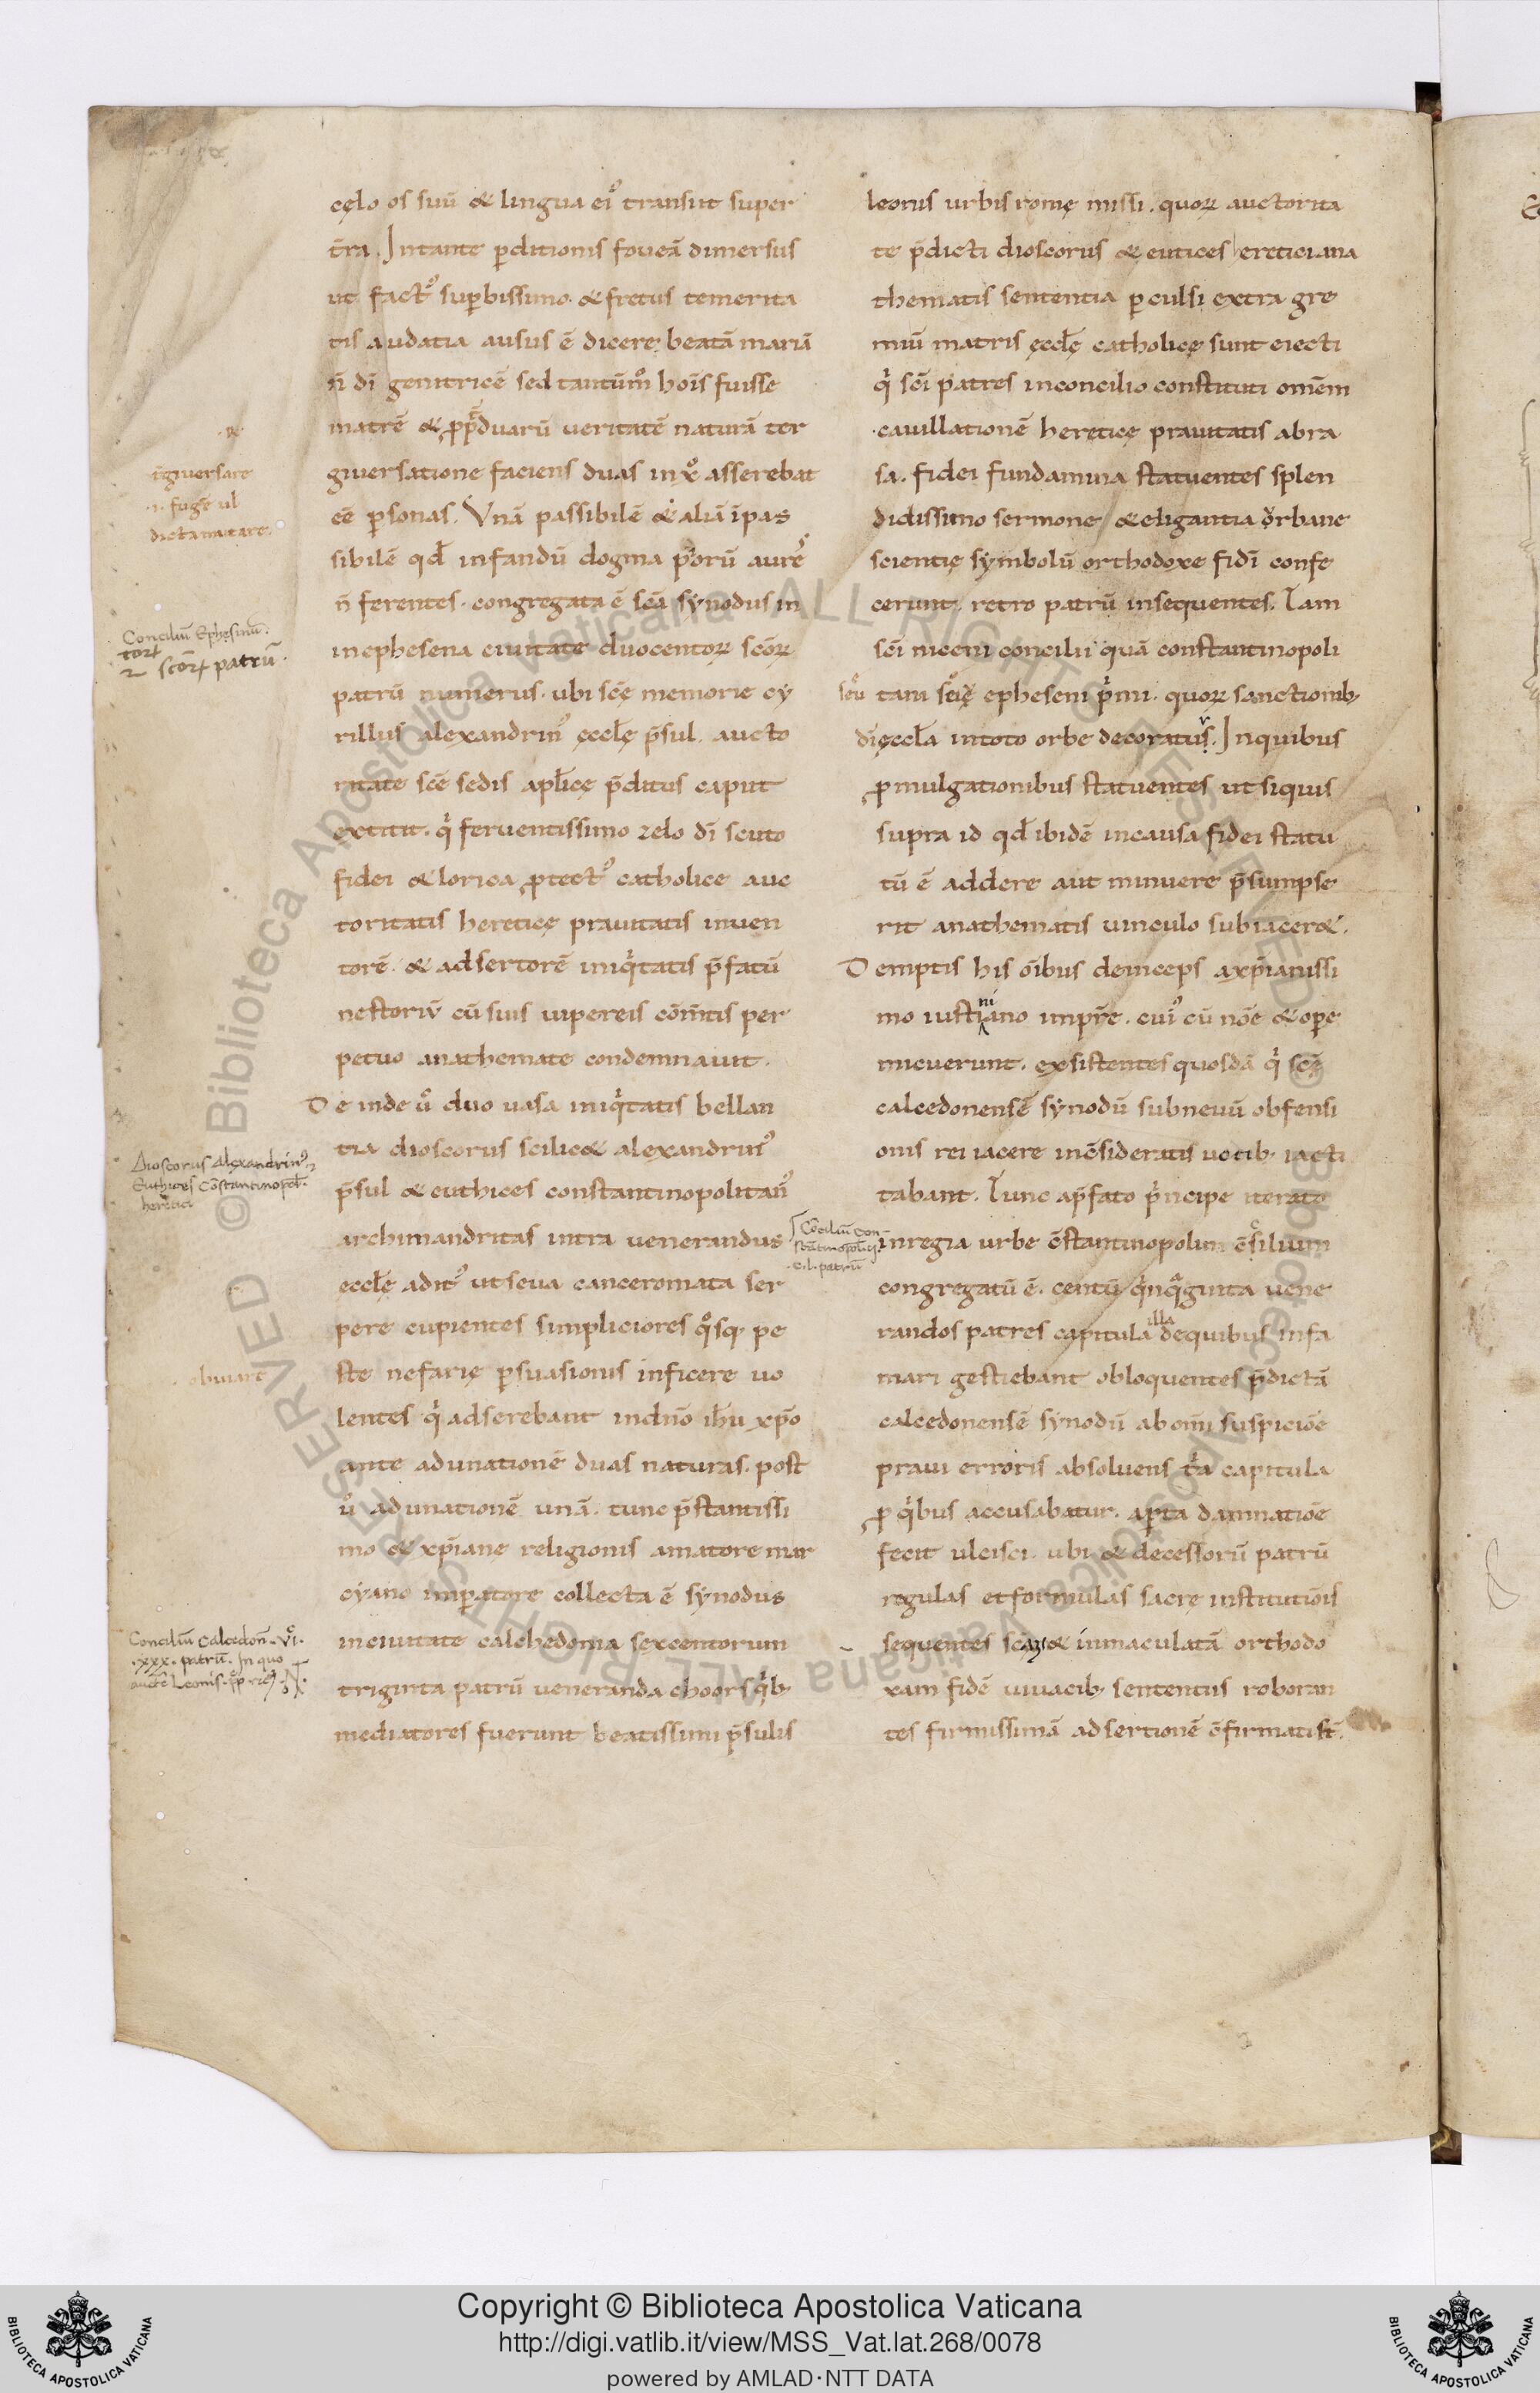 cęlo os suū & lingua ei᾽ transiit super
t̄ra. Intante p̱ditionis foueā dimersus
ut fact᾽ sup̱bissimo. & fretus temerita
tis audatia ausus ē dicere beatā mariā
n̄ dī genitricē sed tantūm̊ hoīs fuisse
matrē & duarū ueritatē naturā ter
giuersatione faciens duas inx̊ asserebat
eē p̱sonas. Vnā passibilē & aliā īpas
sibilē qđ infandū dogma piorū aurē᾽
n̄ ferentes. congregata ē scā synodus in
inephesena ciuitate duocentoꝝ scōꝝ
patrū numerus. ubi scę memorie cy
rillus alexandrin᾽ ęccłę p̄sul. aucto
ritate scē sedis aplīcę p̄ditus caput
extitit. q̇ feruentissimo zelo dī scuto
fidei & lorica ꝓtect᾽ catholice auc
toritatis hereticę prauitatis inuen
torē. & adsertorē iniq̇tatis p̄fatū
nestoriū cū suis uipereis cōm̄tis per
petuo anathemate condemnauit.
De inde ů duo uasa iniq̇tatis bellan
tia dioscorus scilic& alexandrin᾽
p̄sul & euthices constantinopolitan᾽
archimandritas intra uenerandus
ęccłę adit᾽ ut seua canceromata ser
pere cupientes simpliciores q̊sq. pe
ste nefarię p̱suasionis inficere uo
lentes q̇ adserebant indn̄o ihū xp̄o
ante adunationē duas naturas. post
ů adunationē unā. tunc p̄stantissi
mo & xp̄iane religionis amatore mar
cyano imp̱atore collecta ē synodus
inciuitate calchedonia sexcentorum
triginta patrū ueneranda choors q̇b;
mediatores fuerunt beatissimi p̄sulis
tḡiuersare
.i. fugē ul
dicta mutare.
Conciliū Ephesinū.
scōrꝝ patrū.
Dioscorus alexandrin᾽
Euthices Cōstantinopoł.
heretici
obuiare
Conciliū Calcedoñ. vi.
.xxx. patrū. In quo
leonis urbis romę missi. quoꝝ auctorita
te p̄dicti dioscorus & eutices ereticiana
thematis sententia p̱culsi extra gre
miū matris ęccłę catholicę sunt eiecti
q̇ scī patres inconcilio constituti omēm
cauillationē hereticę prauitatis abra
sa. fidei fundamina statuentes splen
didissimo sermone & eligantia ǒrbane
scientię symbolū orthodoxe fidī confe
cerunt. retro patrū insequentes. Tam
scī niceni concilii quā constantinopoli
tani scię epheseni p̓mi. quoꝝ sanctionib;
dī ęccła intoto orbe decoratus. Inquibus
ꝓmulgationibus statuentes ut siquis
supra id qđ ibidē incausa fidei statu
tū ē addere aut minuere p̄sumpse
rit anathematis uinculo subiacer&.
Demptis his oībus deinceps axp̄ianissi
mo iustiniano imp̱r̄e. cui᾽ cū nōe & ope
micuerunt. exsistentes quosdā q̇ scę
calcedonensē synodū subneuū obfensi
onis rei iacere incōsideratis uocib; iacti
tabant. Tunc ap̄fato p̓ncipe iterato
inregia urbe c̄stantinopolim c̄silium
congregatū ē. centū q̇nq̊ginta uene
randos patres capitula illa dequibus infa
mari gestiebant obloquentes p̄dictā
calcedonensē synodū abom̄i suspiciōe
praui erroris absoluens t̓a capitula
ꝓ q̇bus accusabatur. ap̱ta damnatiōe
fecit ulcisci. ubi & decessorū patrū
regulas et formulas sacrę institutiōis
sequentes scām & inmaculatā orthodo
xam fidē uiuacib; sententiis roboran
tes firmissimā adsertionē c̄firmatist̄.
Cōciliū con
stātinopolis
.c.l. patrū
Copyright © Biblioteca Apostolica Vaticana
http://digi.vatlib.it/view/MSS_Vat.lat.268/0078
powered by AMLAD·NTT DATA
BIBLIOTECA APOSTOLICA VATICANA
BIBLIOTECA APOSTOLICA VATICANA
© Biblioteca Apostolica Vaticana ALL RIGHTS RESERVED
© Biblioteca Apostolica Vaticana ALL RIGHTS RESERVED